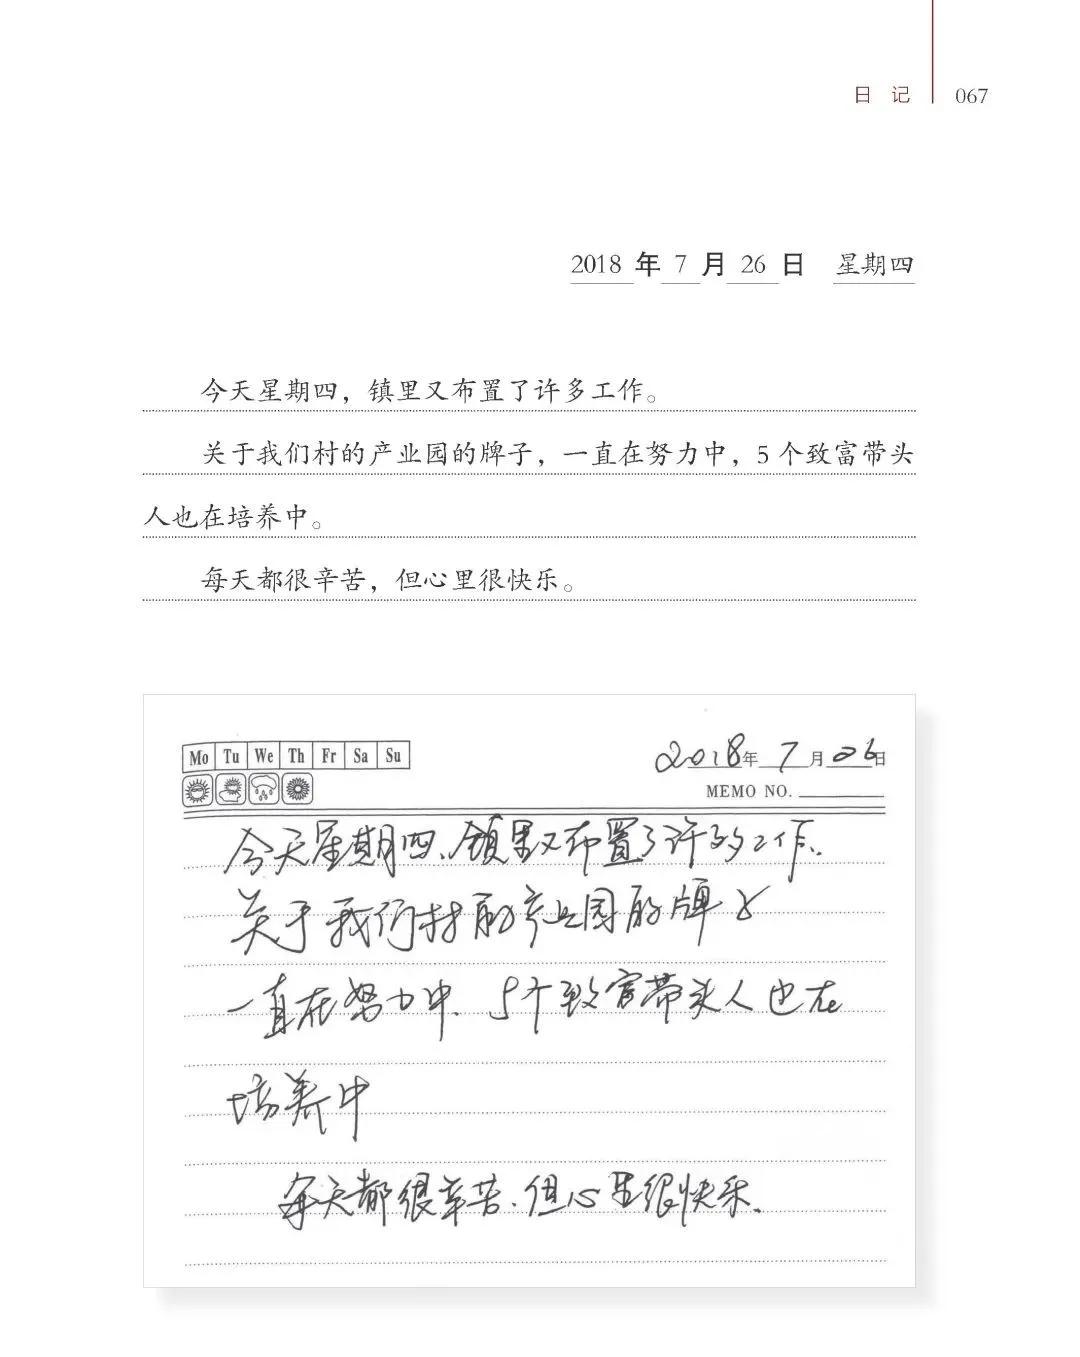 日 记 067
2018 年 7 月 26 日 星期四
今天星期四，镇里又布置了许多工作。
关于我们村的产业园的牌子，一直在努力中，5 个致富带头
人也在培养中。
每天都很辛苦，但心里很快乐。
Mo Tu We Th Fr Sa Su
2018年 7 月 26日
MEMO NO.
今天星期四、镇里又布置了许多工作、
关于我们村的产业园的牌子
一直在努力中、5个致富带头人也在
培养中
每天都很辛苦、但心里很快乐、